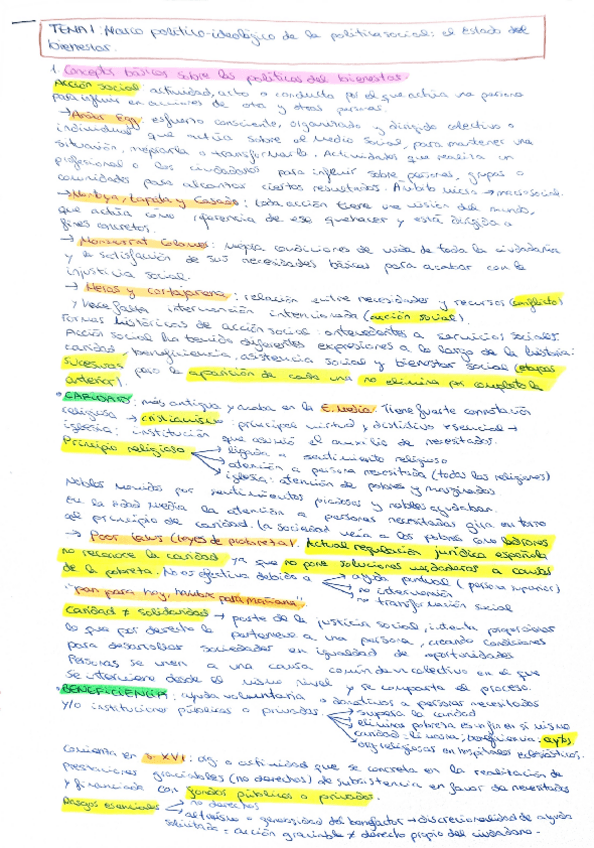 TEMA 1: Marco político-ideológico de la política social: el Estado del
bienestar.
1. Conceptos básicos sobre las políticas del bienestar.
Acción social: actividad, acto o conducta por el que actúa una persona
para influir en acciones de otra y otras personas.
→ Ander Egg: esfuerzo consciente, organizado y dirigido colectivo o
individual que actúa sobre el Medio Social, para mantener una
situación, mejorarla o transformarla. Actividades que realiza un
profesional o los ciudadanos para influir sobre personas, grupos o
comunidades para alcanzar ciertos resultados. Ámbito micro → macrosocial.
→ Zapata y Casado: toda acción tiene una visión del mundo,
que actúa como referencia de ese quehacer y está dirigida a
fines concretos.
→ Montserrat Colomer: mejora condiciones de vida de toda la ciudadanía
y la satisfacción de sus necesidades básicas para acabar con la
injusticia social.
→ Heras y Cortajarena: relación entre necesidades y recursos (conflicto)
y hace falta intervención intencionada (acción social).
Formas históricas de acción social: antecedentes a servicios sociales.
Acción social ha tenido diferentes expresiones a lo largo de la historia:
caridad, beneficencia, asistencia social y bienestar social (etapas
sucesivas pero la aparición de cada una no elimina por completo la
anterior).
• CARIDAD: más antigua y acaba en la E. Media. Tiene fuerte connotación
religiosa → cristianismo: principal virtud y distintivo esencial →
iglesia: institución que asumió el auxilio de necesitados.
Principio religioso → ligada a sentimiento religioso
→ atención a persona necesitada (todas las religiones)
→ iglesia: atención de pobres y marginados
Nobles movidos por sentimientos piadosos y nobles ayudaban.
En la Edad Media la atención a personas necesitadas gira en torno
al principio de caridad. La sociedad veía a los pobres como ladrones
→ Poor Laws (leyes de pobreza). Actual regulación jurídica española
no reconoce la caridad ya que no pone soluciones verdaderas a causas
de la pobreza. No es efectiva debido a → ayuda puntual (persona superior)
no intervención
no transformación social
"pan para hoy, hambre para mañana"
Caridad ≠ solidaridad → parte de la justicia social, intenta proporcionar
lo que por derecho le pertenece a una persona, creando condiciones
para desarrollar sociedades en igualdad de oportunidades
Personas se unen a una causa común de un colectivo en el que
se interviene desde el mismo nivel y se comparte el proceso.
• BENEFICENCIA: ayuda voluntaria o donativos a personas necesitadas
y/o instituciones públicas o privadas. → supera la caridad
eliminar pobreza es un fin en sí mismo
caridad: limosna; beneficencia: aytos.
org. religiosas en hospitales eclesiásticos.
Comienza en s. XVI: org. o actividad que se concreta en la realización de
prestaciones graciables (no derechos) de subsistencia en favor de necesitados
y financiada con fondos públicos o privados.
Rasgos esenciales → no derechos
→ altruismo o generosidad del benefactor → discrecionalidad de ayuda
solicitada = acción graciable ≠ derecho propio del ciudadano.